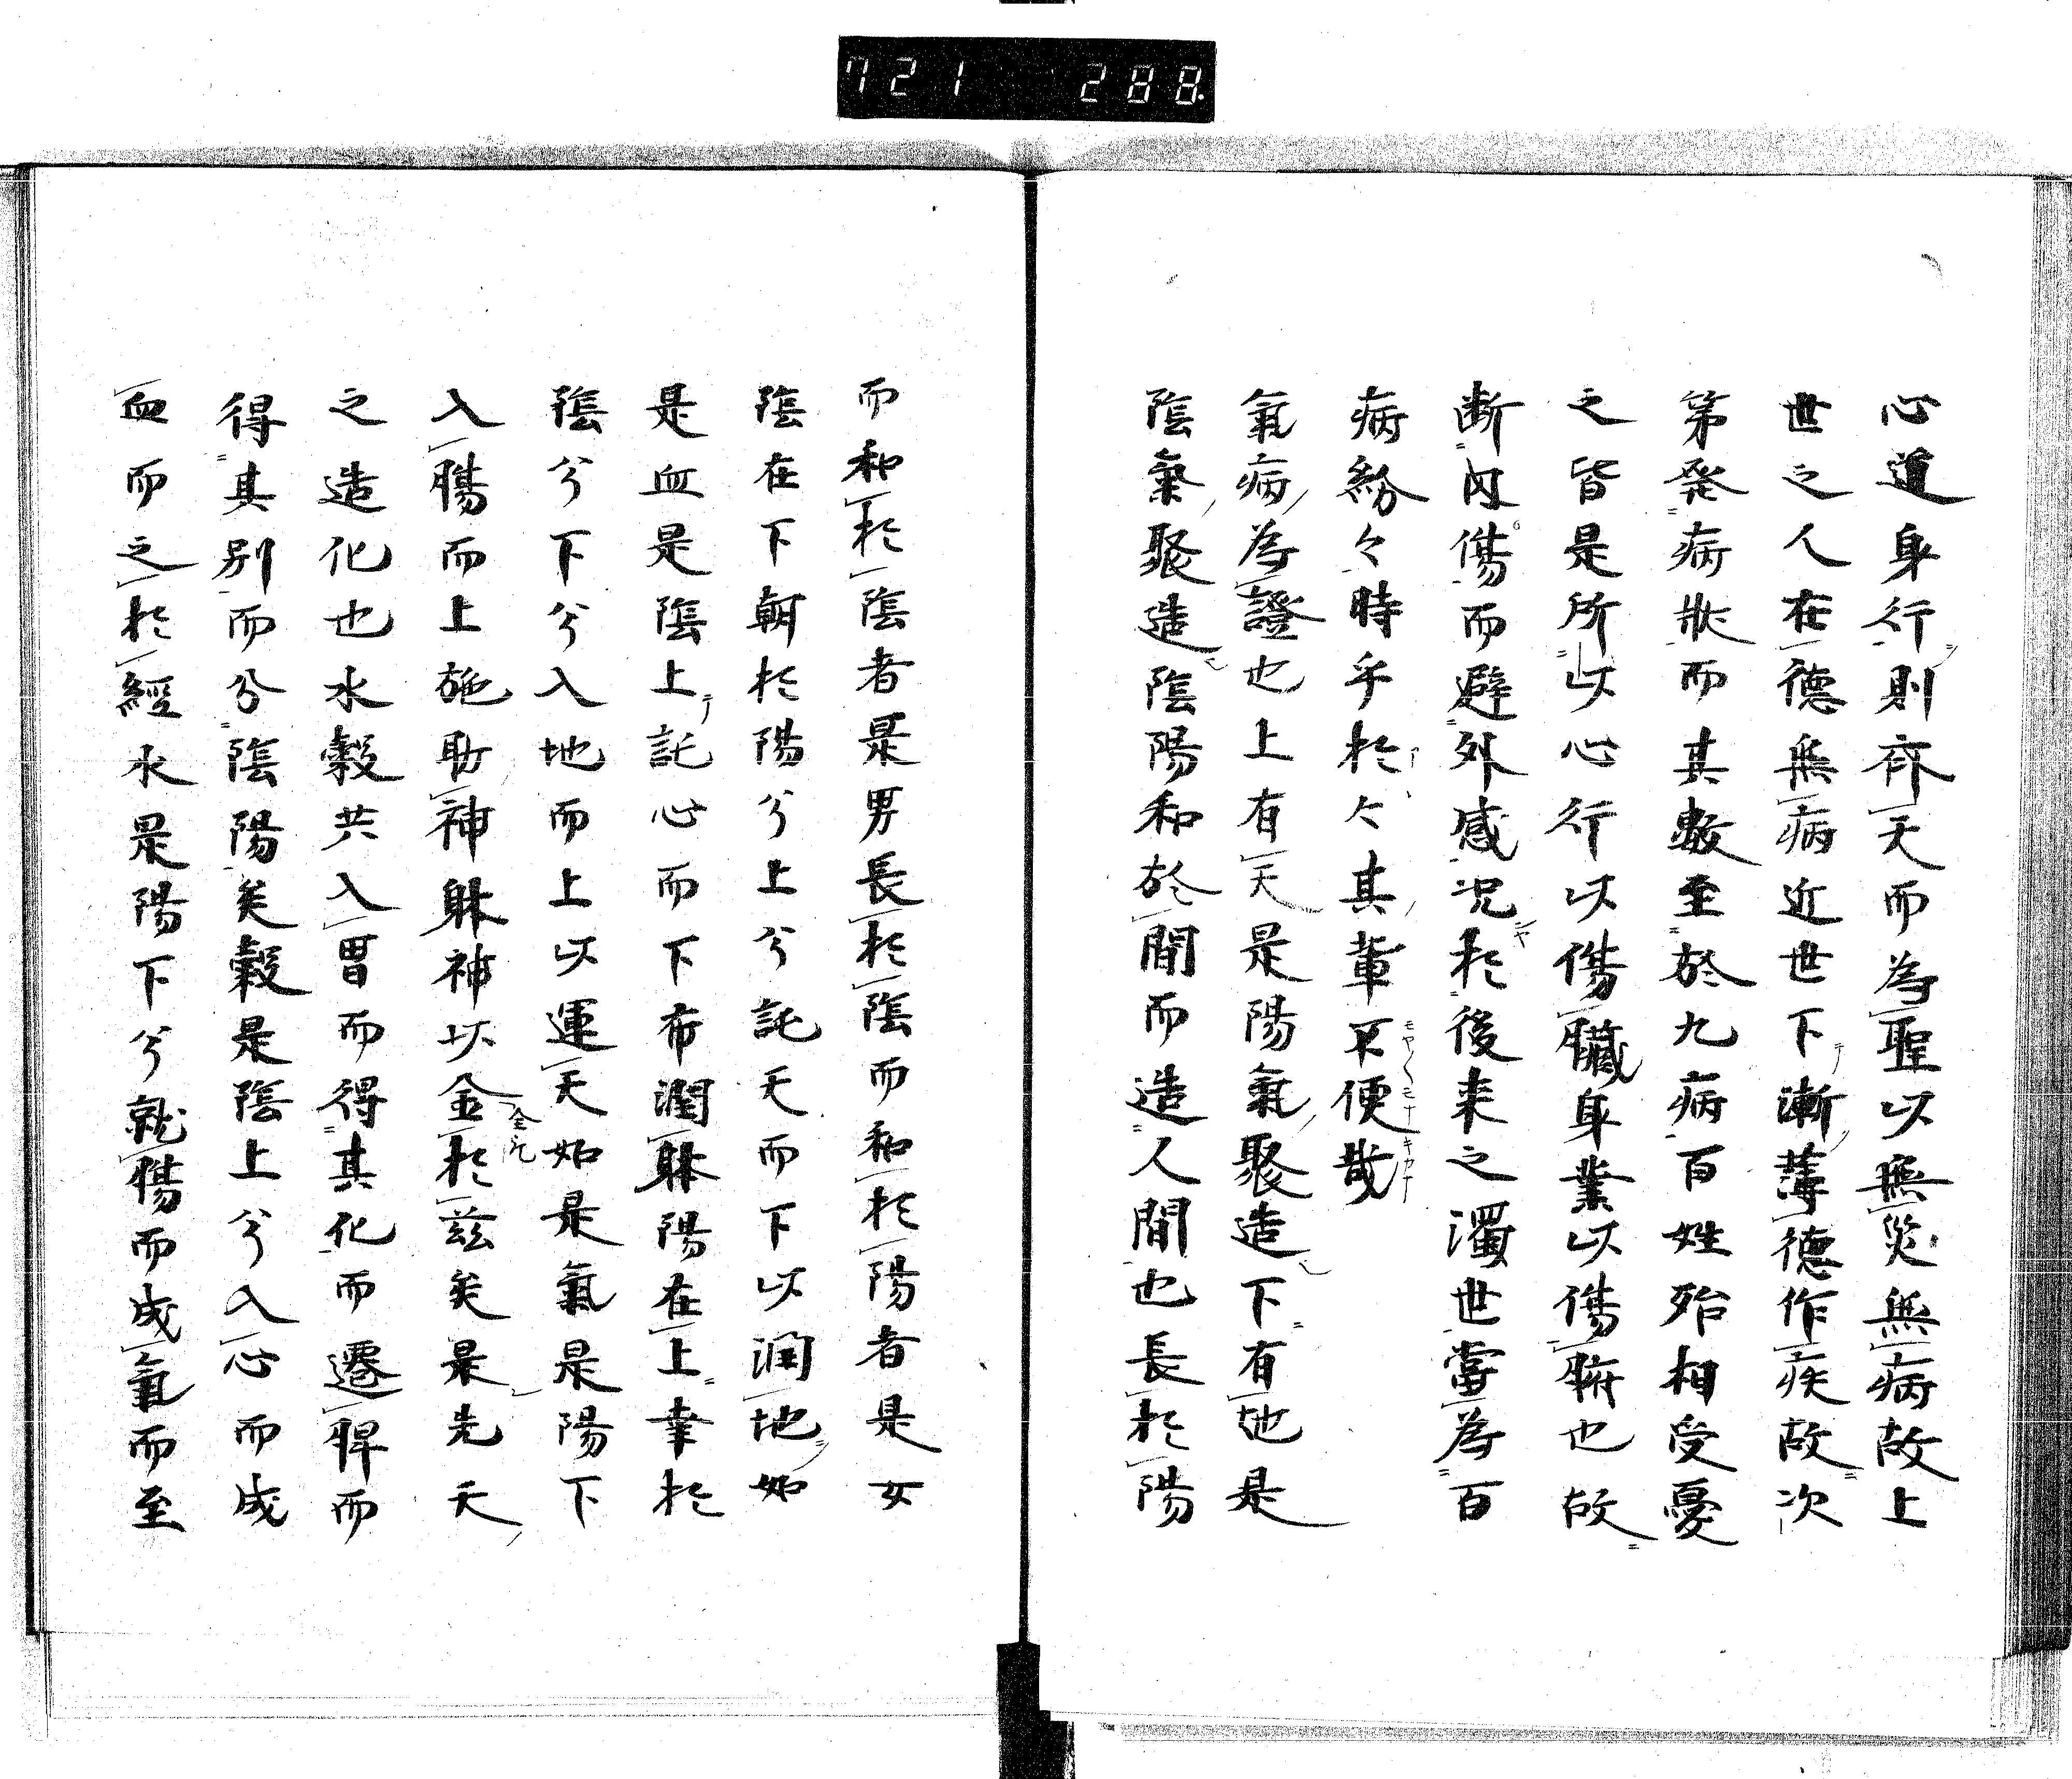 721 288
心道身行則齊天而為聖以無災無病故上
世之人在德無病近世下漸薄德作疾故次
第発病状而其數至於九病百姓殆相受憂
之皆是所以心行以傷臓身業以傷腑也故
断内傷而避外感况於後来之濁世當為百
病紛々時乎於々其輩不便哉
氣病為證也上有天是陽氣聚造下有地是
陰氣聚造陰陽和於間而造人間也長於陽
而和於陰者是男長於陰而和於陽者是女
陰在下朝於陽兮上兮託天而下以潤地如
是血是陰上託心而下布潤躰陽在上幸於
陰兮下兮入地而上以運天如是氣是陽下
入腸而上施助神躰神以金於茲矣是先天
之造化也水穀共入胃而得其化而遷脾而
得其別而分陰陽矣穀是陰上兮入心而成
血而之於經水是陽下兮就腸而成氣而至